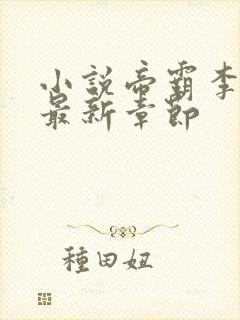 小説帝霸李
最新章節
種田妞